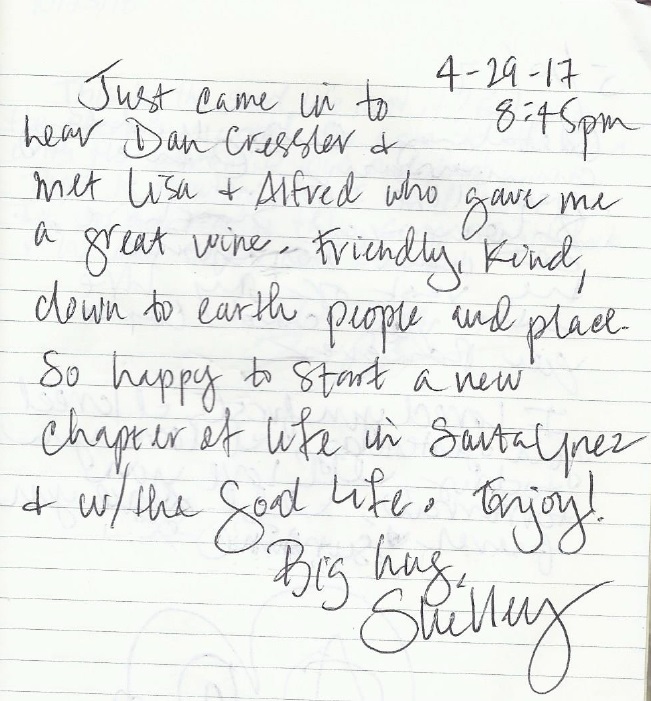 4-29-17
8:45pm
Just came in to
hear Dan Cressler &
met Lisa & Alfred who gave me
a great wine. Friendly, Kind,
down to earth people and place.
So happy to start a new
chapter of life in Santa Ynez
& w/the Good Life. Enjoy!
Big hug,
Shelley